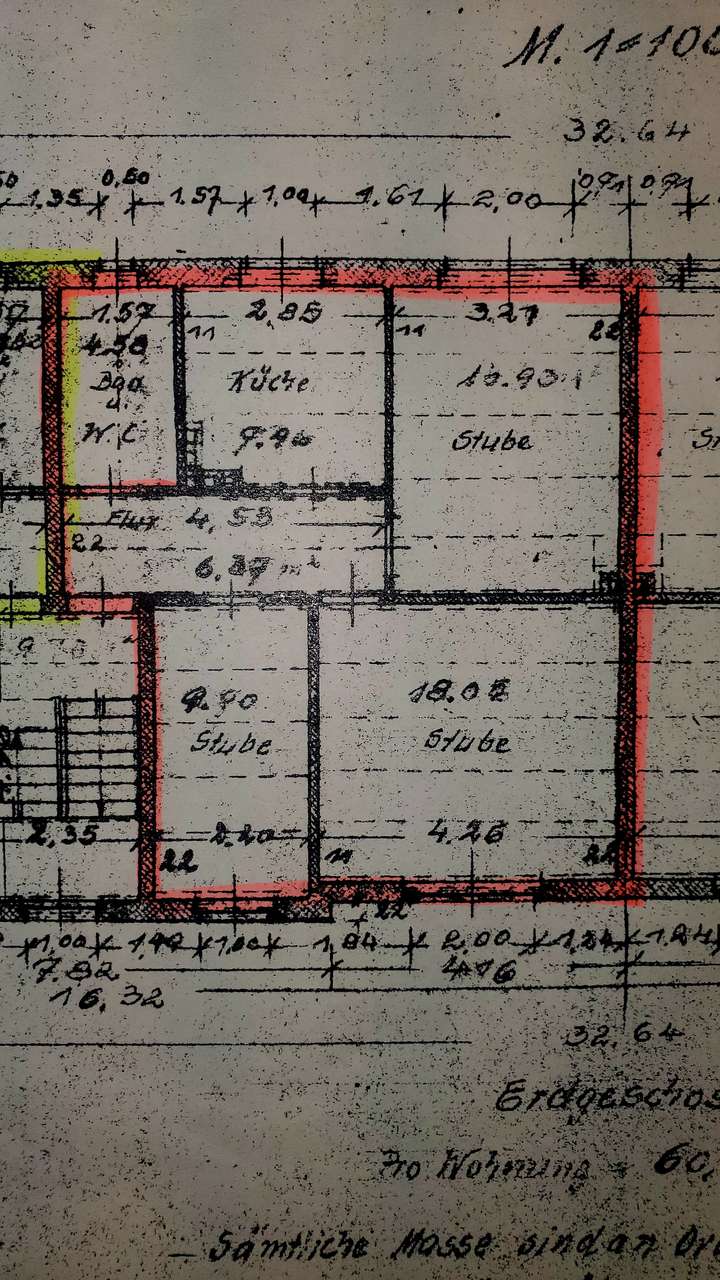 M. 1=100
32.64
1.35 0,50 1.57 1,00 1.61 2,00 0,71 0,71
1.57 2.85 3.27
11 11 22
4.58
Bad
u.
W.C
Küche
Stube
Flur 4,53
22
6.87 m²
9.90
Stube
18.02
Stube
2,35 2.20 4.26
22 11 22
22
1,00 1,00 1,84 2,00 1.24 1.24
7.82 4.16
16,32
32.64
Erdgeschos
Pro Wohnung = 60,
- Sämtliche Masse sind an Or